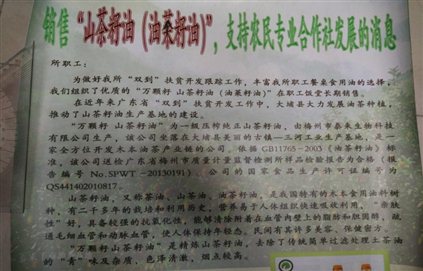 销售“山茶籽油（油茶籽油）”，支持农民专业合作社发展的消息
所职工：
为做好我所“双到”扶贫开发跟踪工作，丰富我所职工餐桌食用油的选择，
我们组织了优质的“万颗籽 山茶籽油（油茶籽油）”在职工饭堂长期销售。
在近年来广东省“双到”扶贫开发工作中，大埔县大力发展油茶种植，
推动了山茶籽油生产基地的建设。
“万颗籽 山茶籽油”为一级压榨纯正山茶籽油，由梅州市泰来生物科技
有限公司生产，该公司坐落在大埔县美丽的古镇——三河工业基地，是一家
全方位开发木本油茶产业链的公司。依据GB11765-2003《油茶籽油》标
准，该公司送检广东省梅州市质量计量监督检测所样品检验报告为合格（报
告编号No.SPWT-20130191）公司的国家食品生产许可证编号为
QS441402010817.
山茶籽油，又称茶油、山茶油、油茶籽油，是我国特有的木本食用油料树
种，有二千多年的栽培和利用历史。营养易于人体组织快速吸收利用，亲肤
性”好，具备较强的抗氧化性，能够清除附着在血管内壁上的脂肪和胆固醇，疏
通毛细血管和动脉血管，使人体保持年轻。民间有其许多美容、保健偏方。
“万颗籽山茶籽油”是精炼山茶籽油，去除了传统简单过滤处理土茶油
的“青”味及杂质，色泽清澈，烟点较高。